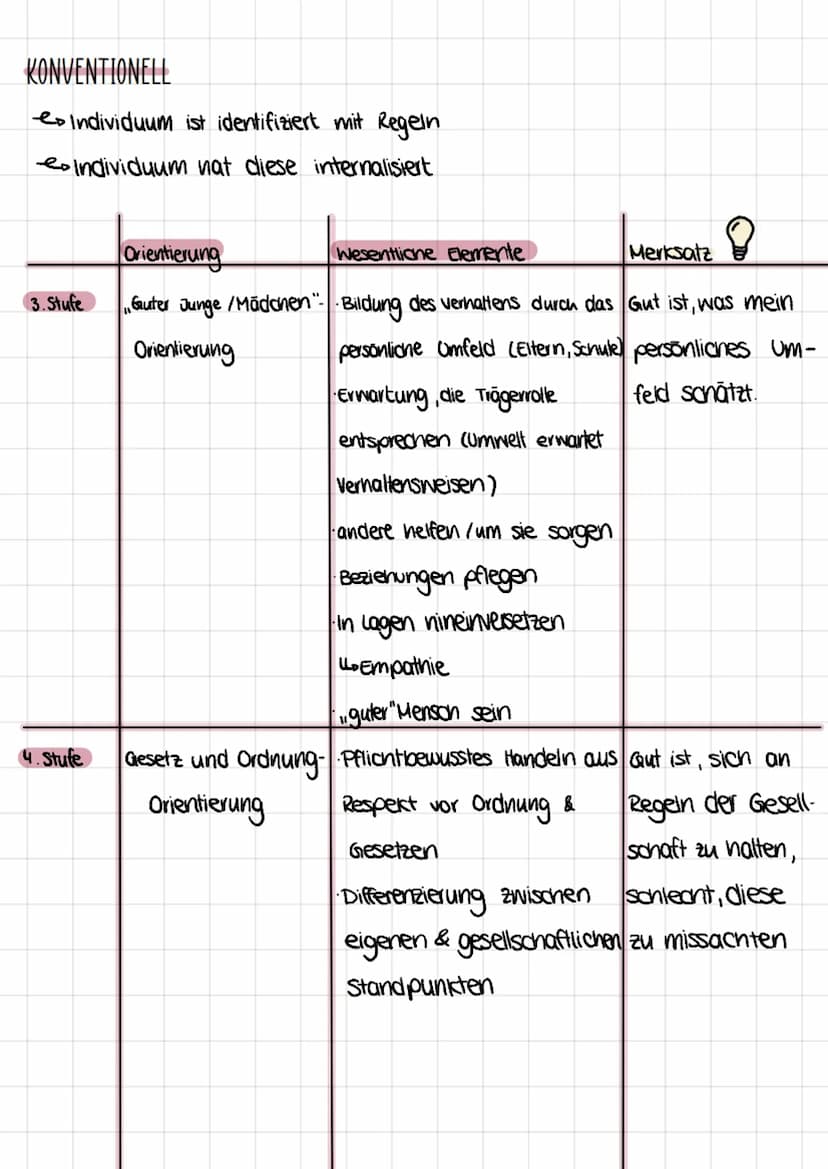 KONVENTIONELL
↪ Individuum ist identifiziert mit Regeln
↪ Individuum hat diese internalisiert
Orientierung
Wesentliche Elemente
Merksatz
3. Stufe
„Guter Junge / Mädchen"-
Orientierung
· Bildung des verhaltens durch das
persönliche Umfeld (Eltern, Schule)
· Erwartung, die Trägerrolle
entsprechen (Umwelt erwartet
Verhaltensweisen)
· andere helfen / um sie sorgen
· Beziehungen pflegen
· In Lagen hineinversetzen
↳ Empathie
· „guter" Mensch sein
Gut ist, was mein
persönliches Um-
feld schätzt.
4. Stufe
Gesetz und Ordnung-
Orientierung
· Pflichtbewusstes Handeln aus
Respekt vor Ordnung &
Gesetzen
· Differenzierung zwischen
eigenen & gesellschaftlichen
Standpunkten
Gut ist, sich an
Regeln der Gesell-
schaft zu halten,
schlecht, diese
zu missachten